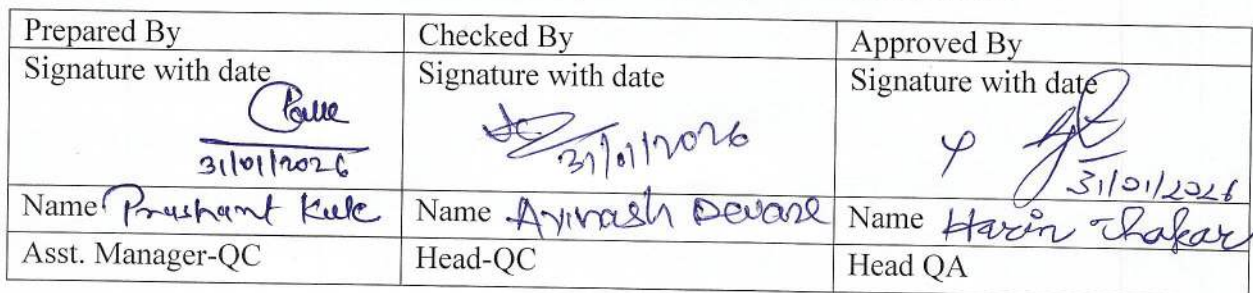 Prepared By
Checked By
Approved By
Signature with date
Signature with date
Signature with date
31/01/2026
31/01/2026
31/01/2026
Name Prashant Kule
Name Avinash Devare
Name Harin Thakar
Asst. Manager-QC
Head-QC
Head QA